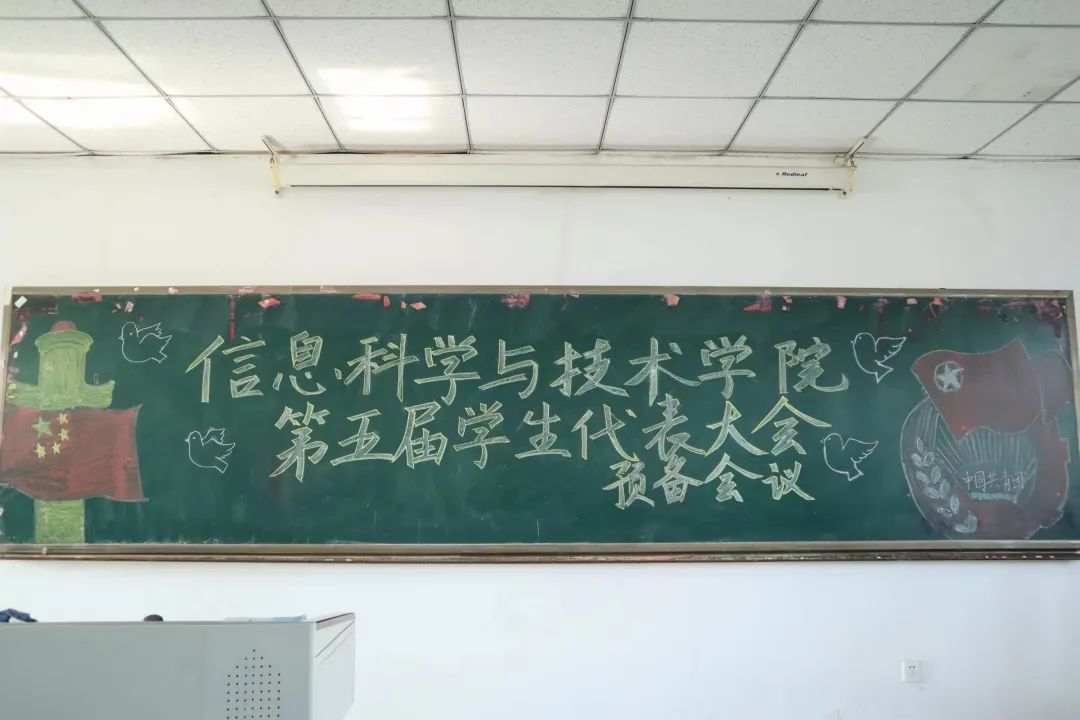 Redleaf
信息科学与技术学院
第五届学生代表大会
预备会议
中国共青团